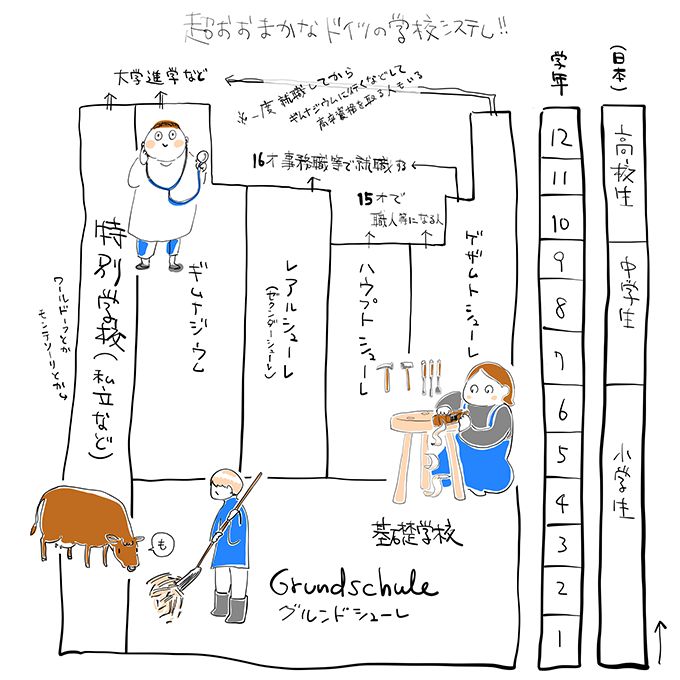 超おおまかなドイツの学校システム!!
大学進学など
※一度就職してから
ギムナジウムに行くなどして
高卒資格を取る人もいる
16才事務職等で就職する
15才で
職人等になる人
特別学校(私立など)
ワールドーフとか
モンテソーリとか
ギムナジウム
レアルシューレ
(ゼクンダーシューレ)
ハウプトシューレ
ゲザムトシューレ
も
基礎学校
Grundschule
グルンドシューレ
学年
12
11
10
9
8
7
6
5
4
3
2
1
(日本)
高校生
中学生
小学生